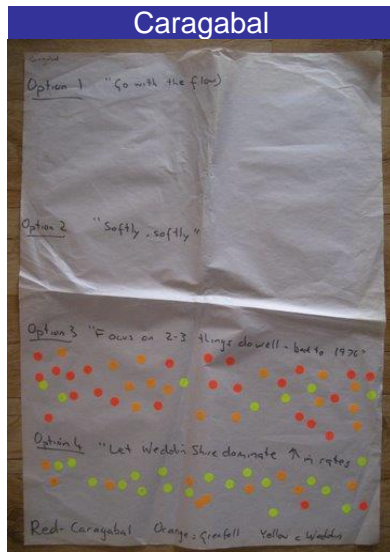 Caragabal
Caragabal
Option 1 "Go with the flow)
Option 2 "Softly, softly"
Option 3 "Focus on 2-3 things do well - back to 1970"
Option 4 "Let Weddin Shire dominate ↑ in rates
Red - Caragabal Orange = Grenfell Yellow = Weddin